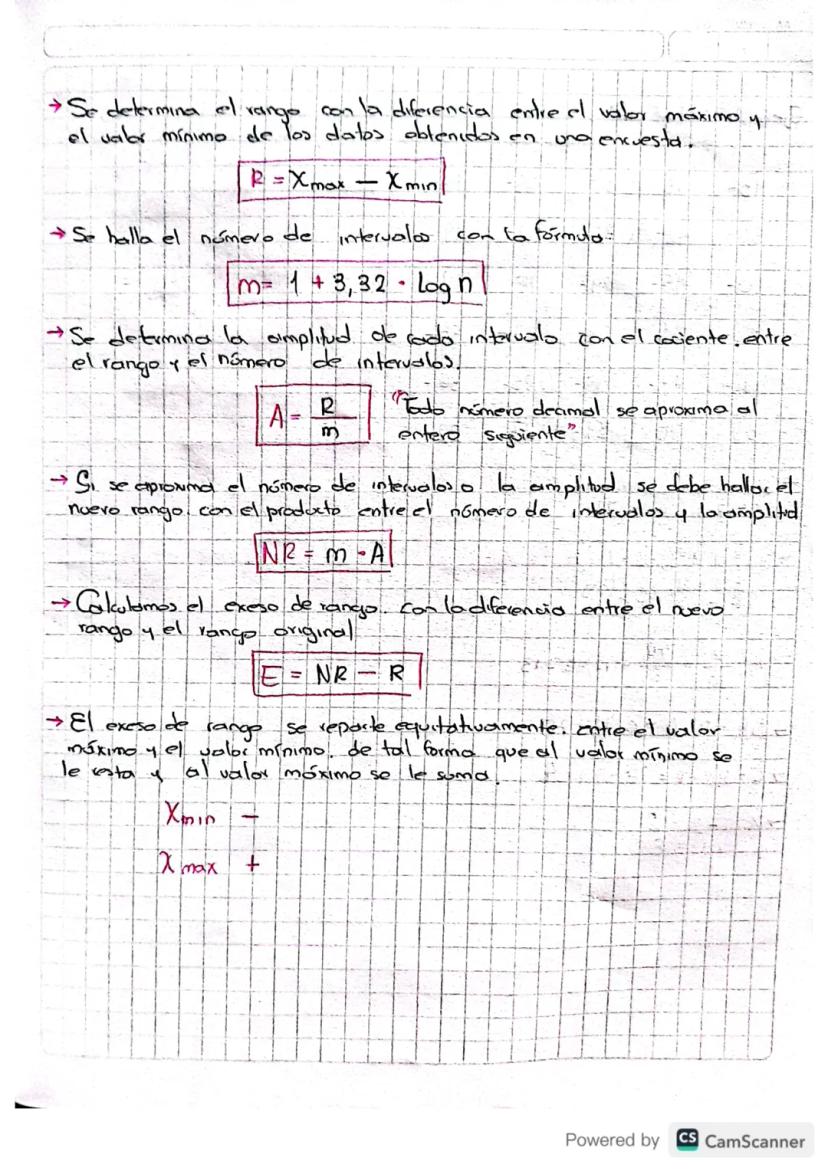 → Se determina el rango con la diferencia entre el valor máximo y
el valor mínimo de los datos obtenidos en una encuesta.
R = Xmax − Xmin
→ Se halla el número de intervalos con la fórmula:
m = 1 + 3,32 · Log n
→ Se determina la amplitud de cada intervalo con el cociente entre
el rango y el número de intervalos.
A = R/m
"Todo número decimal se aproxima al
entero siguiente"
→ Si se aproxima el número de intervalos o la amplitud se debe hallar el
nuevo rango con el producto entre el número de intervalos y la amplitud
NR = m · A
→ Calculamos el exeso de rango con la diferencia entre el nuevo
rango y el rango original
E = NR − R
→ El exeso de rango se reparte equitativamente entre el valor
máximo y el valor mínimo de tal forma que al valor mínimo se
le resta y al valor máximo se le suma.
Xmin −
Xmax +
Powered by CS CamScanner